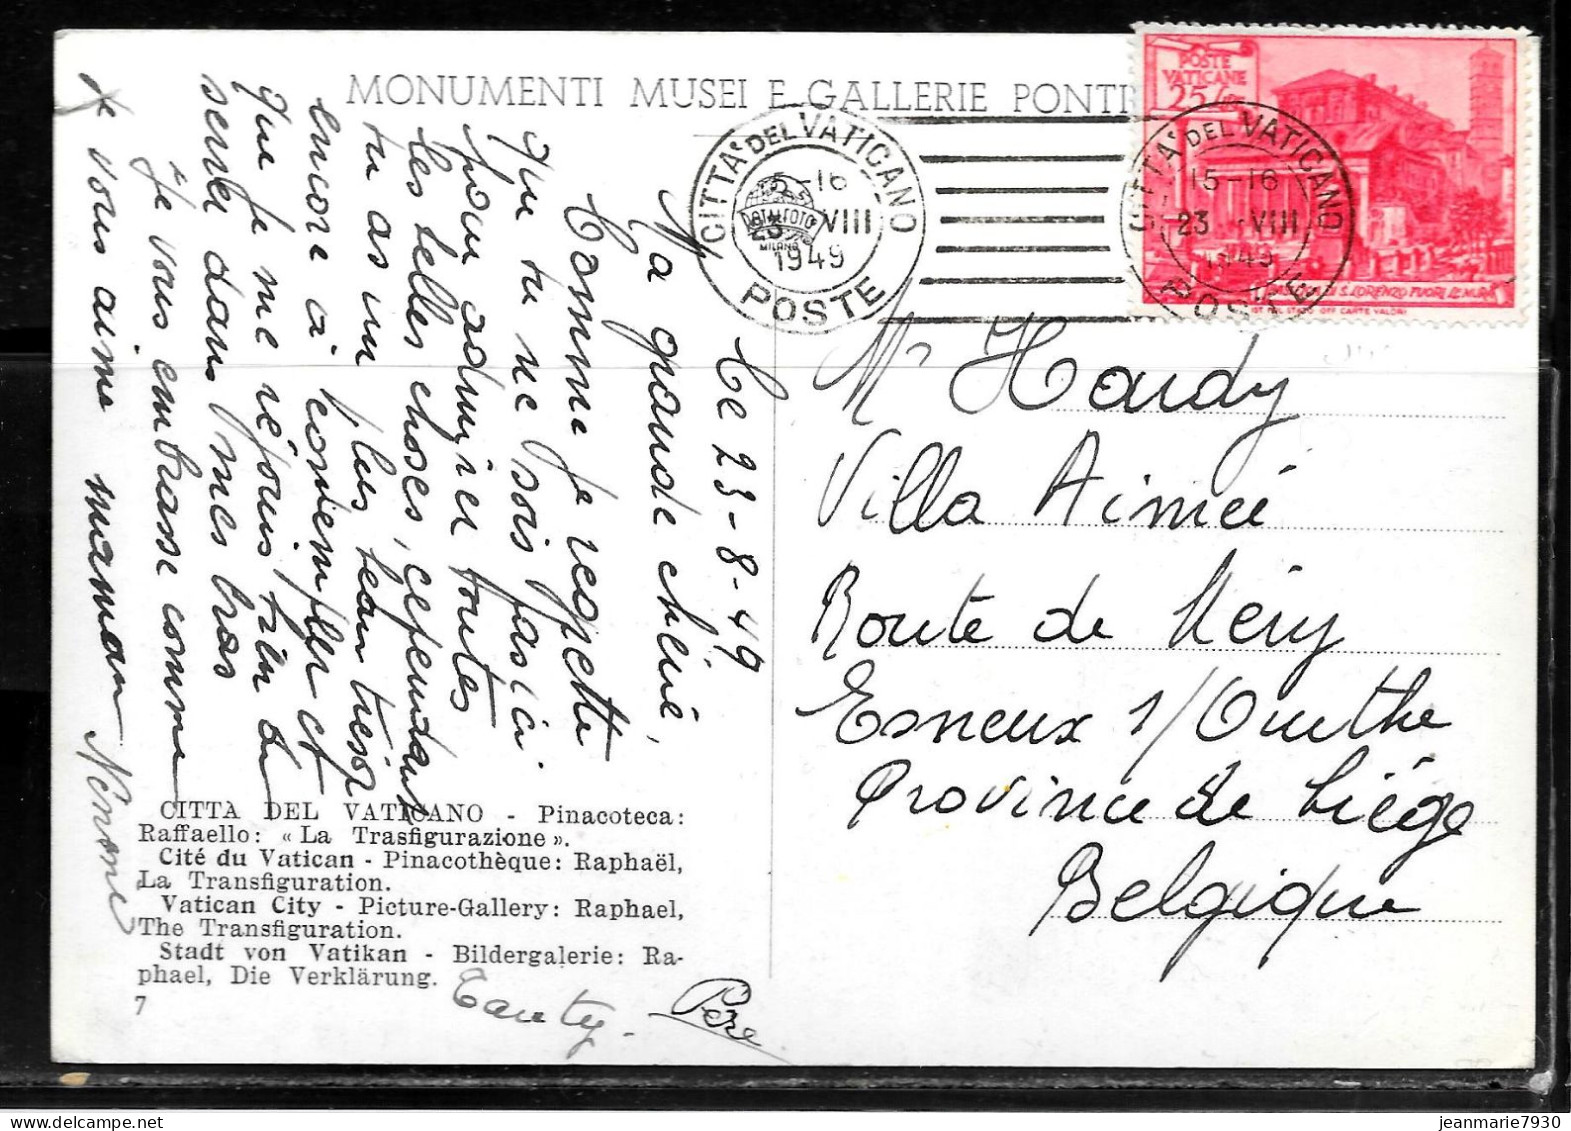 MONUMENTI MUSEI E GALLERIE PONTIF
POSTE
VATICANE
25
BASILICA DI S. LORENZO FUORI LE MURA
IST. POL. STATO OFF. CARTE VALORI
CITTÀ DEL VATICANO
15-16
23 VIII
1949
POSTE
CITTÀ DEL VATICANO
15-16
23 VIII
1949
POSTE
ROTALFOTO
MILANO
Ce 23-8-49
Ma grande chérie,
Comme je regrette
que tu ne sois pas ici
pour admirer toutes
les belles choses, cependant
tu as un plus beau trésor
encore à contempler et
que je me réjouis bien de
serrer dans mes bras
Je vous embrasse comme
je vous aime maman Nenone
Tanty.
Père
Mr Hardy
Villa Aimée
Route de Méry
Esneux s/Ourthe
Province de Liége
Belgique
CITTÀ DEL VATICANO - Pinacoteca:
Raffaello: « La Trasfigurazione ».
Cité du Vatican - Pinacothèque: Raphaël,
La Transfiguration.
Vatican City - Picture-Gallery: Raphael,
The Transfiguration.
Stadt von Vatikan - Bildergalerie: Ra-
phael, Die Verklärung.
7
jeanmarie7930